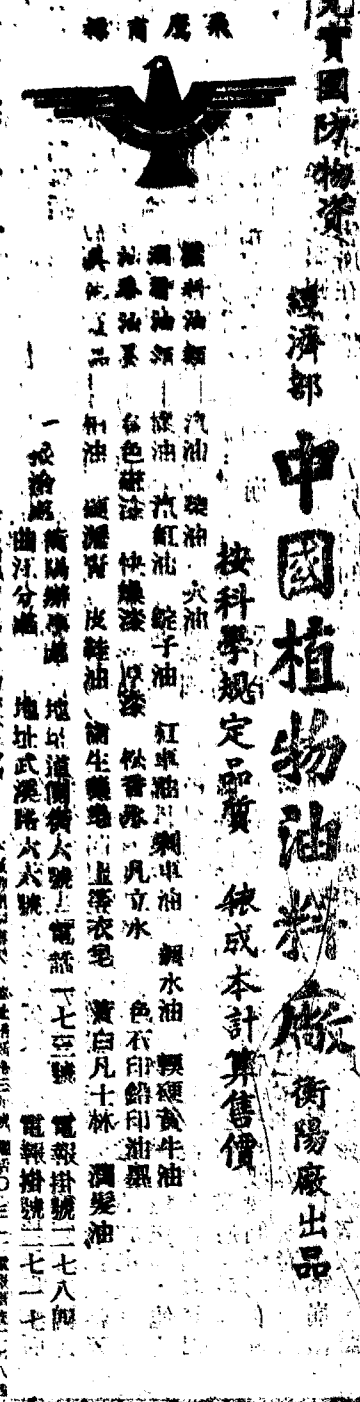 充實國防物資
飛鷹商標
經濟部
中國植物油料廠
衡陽廠出品
按科學規定品質 依成本計算售價
燃料油類——汽油 柴油 火油
潤滑油類——機油 汽缸油 錠子油 紅車油 剎車油 親水油 軟硬黃牛油
油漆油墨——各色磁漆 快燥漆 厚漆 松香水 凡立水 色石印鉛印油墨
其他 品——柏油 瀝青 皮鞋油 衛生藥皂 上等衣皂 黃白凡士林 潤髮油
一 接洽處
衡陽辦事處 地址道前街六號 電話一七三號 電報掛號二七八四
曲江分處 地址武漢路六六號 電報掛號二七一七